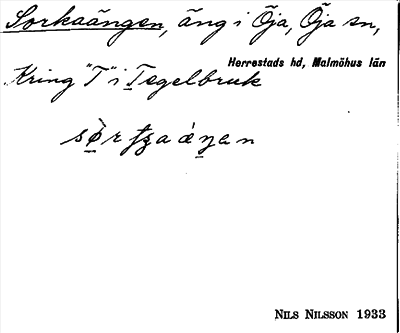 Sorkaängen, äng i Öja, Öja sn,
Herrestads hd, Malmöhus län
Kring "T" i Tegelbruk
NILS NILSSON 1933